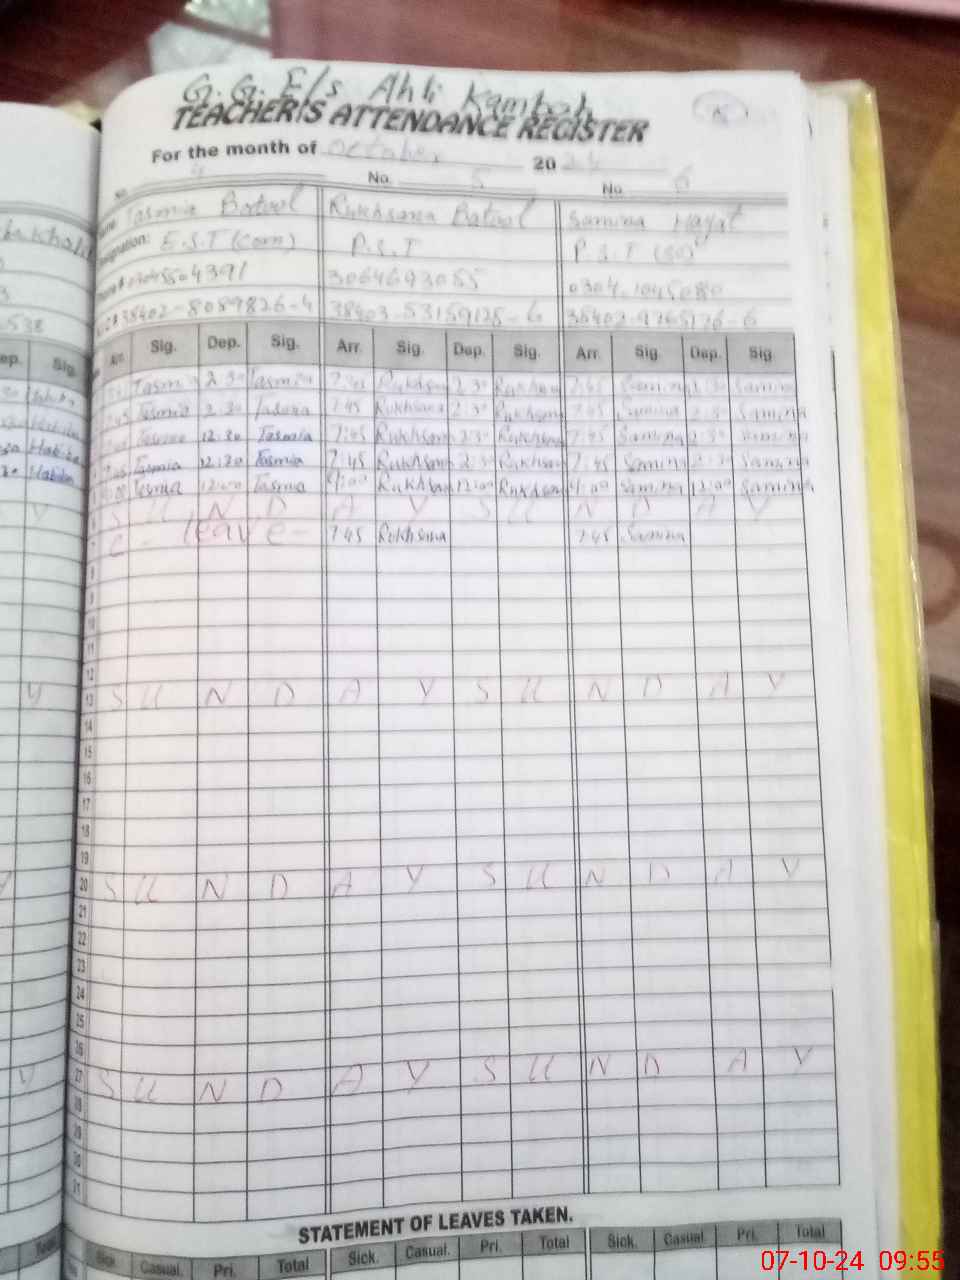 G. G. E/S Ahli Kamboh
TEACHER'S ATTENDANCE REGISTER
For the month of October 2024
No. 4 No. 5 No. 6
Tasmia Batool Rukhsana Batool Samina Hayat
Designation: E.S.T (Com) P.S.T P.S.T
3064693055 0304-1045080
38402-8089826-4 38403-5315912-6
Dep. Sig. Arr. Sig. Dep. Sig. Arr. Sig. Dep. Sig. Arr. Sig. Dep. Sig
Tasmia 2:30 Tasmia 7:45 Rukhsana 2:30 Rukhsana 7:45 Samina 2:30 Samina
Tasmia 2:30 Tasmia 7:45 Rukhsana 2:30 Rukhsana 7:45 Samina 2:30 Samina
Habiba Tasmia 12:30 Tasmia 7:45 Rukhsana 2:30 Rukhsana 7:45 Samina 2:30 Samina
Habiba 7:45 Tasmia 12:30 Tasmia 7:45 Rukhsana 2:30 Rukhsana 7:45 Samina 2:30 Samina
Tasmia 12:00 Tasmia Rukhsana 12:00 Rukhsana Samina 12:00 Samina
Y S U N D A Y S U N D A Y
C - leave - 7:45 Rukhsana 7:45 Samina
8
9
10
11
12
Y 13 S U N D A Y S U N D A Y
14
15
16
17
18
19
Y 20 S U N D A Y S U N D A Y
21
22
23
24
25
26
Y 27 S U N D A Y S U N D A Y
28
29
30
31
STATEMENT OF LEAVES TAKEN.
Total Sick. Casual. Pri. Total Sick. Casual. Pri. Total Sick. Casual. Pri. Total
07-10-24 09:55